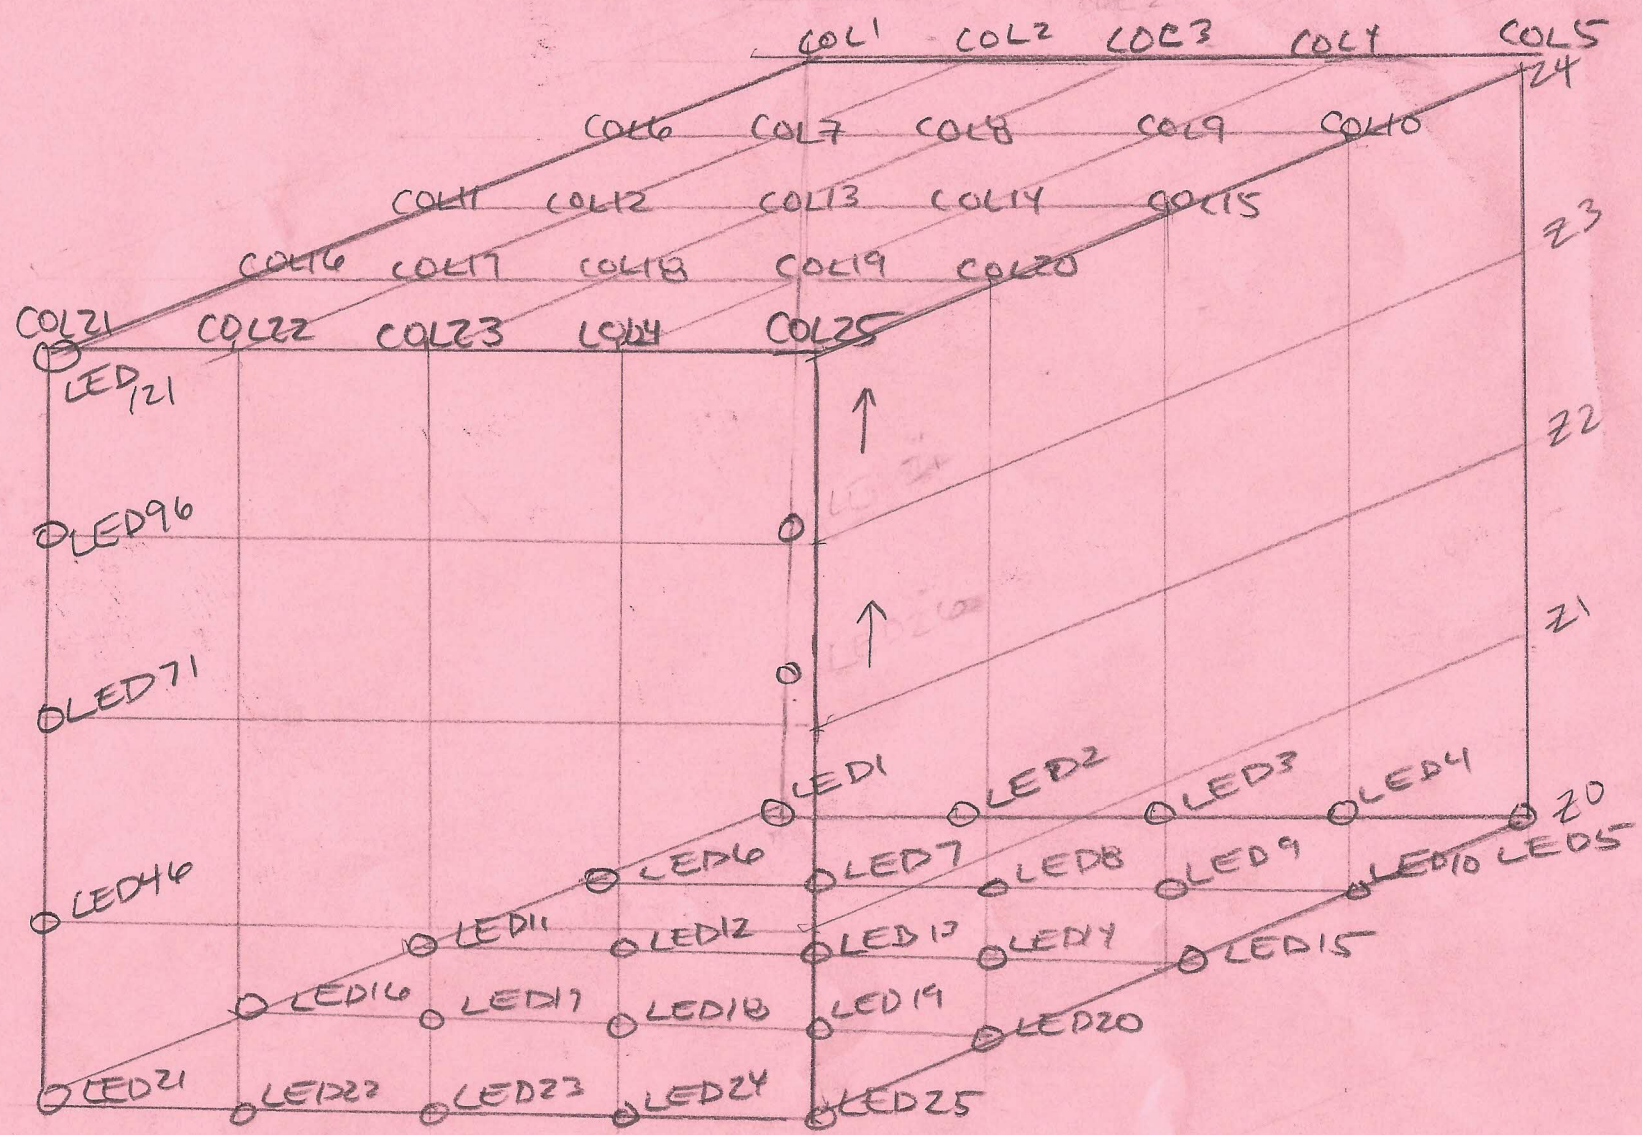 COL1 COL2 COL3 COL4 COL5
Z4
COL6 COL7 COL8 COL9 COL10
COL11 COL12 COL13 COL14 COL15
Z3
COL16 COL17 COL18 COL19 COL20
COL21 COL22 COL23 COL25
LED121
Z2
LED96
Z1
LED71
LED1 LED2 LED3 LED4 Z0
LED6 LED7 LED8 LED9 LED10 LED5
LED46
LED11 LED12 LED13 LED14 LED15
LED16 LED17 LED18 LED19 LED20
LED21 LED22 LED23 LED24 LED25